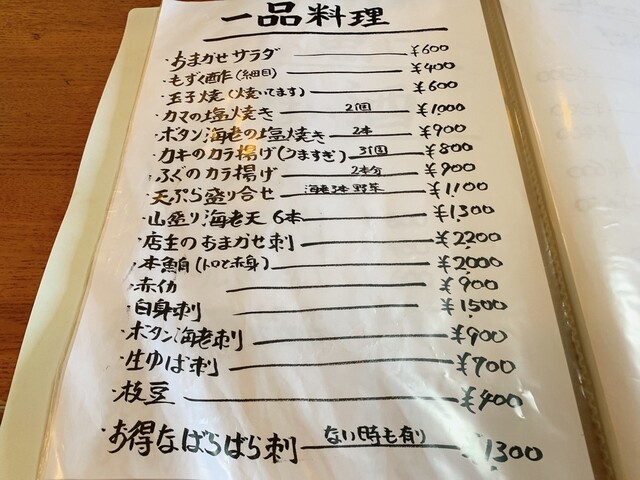 一品料理
・おまかせサラダ ¥600
・もずく酢(細目) ¥400
・玉子焼(焼いてます) ¥600
・カマの塩焼き 2個 ¥1,000
・ボタン海老の塩焼き 2本 ¥900
・カキのカラ揚げ(うますぎ) 3個 ¥800
・ふぐのカラ揚げ 2本分 ¥900
・天ぷら盛り合せ 海老3本 野菜 ¥1,100
・山盛り海老天 6本 ¥1,300
・店主のおまかせ刺 ¥2,200
・本鮪(トロと赤身) ¥2,000
・赤イカ ¥900
・白身刺 ¥1,500
・ボタン海老刺 ¥900
・生ゆば刺 ¥700
・枝豆 ¥400
・お得なばらばら刺 ない時も有り ¥1,300